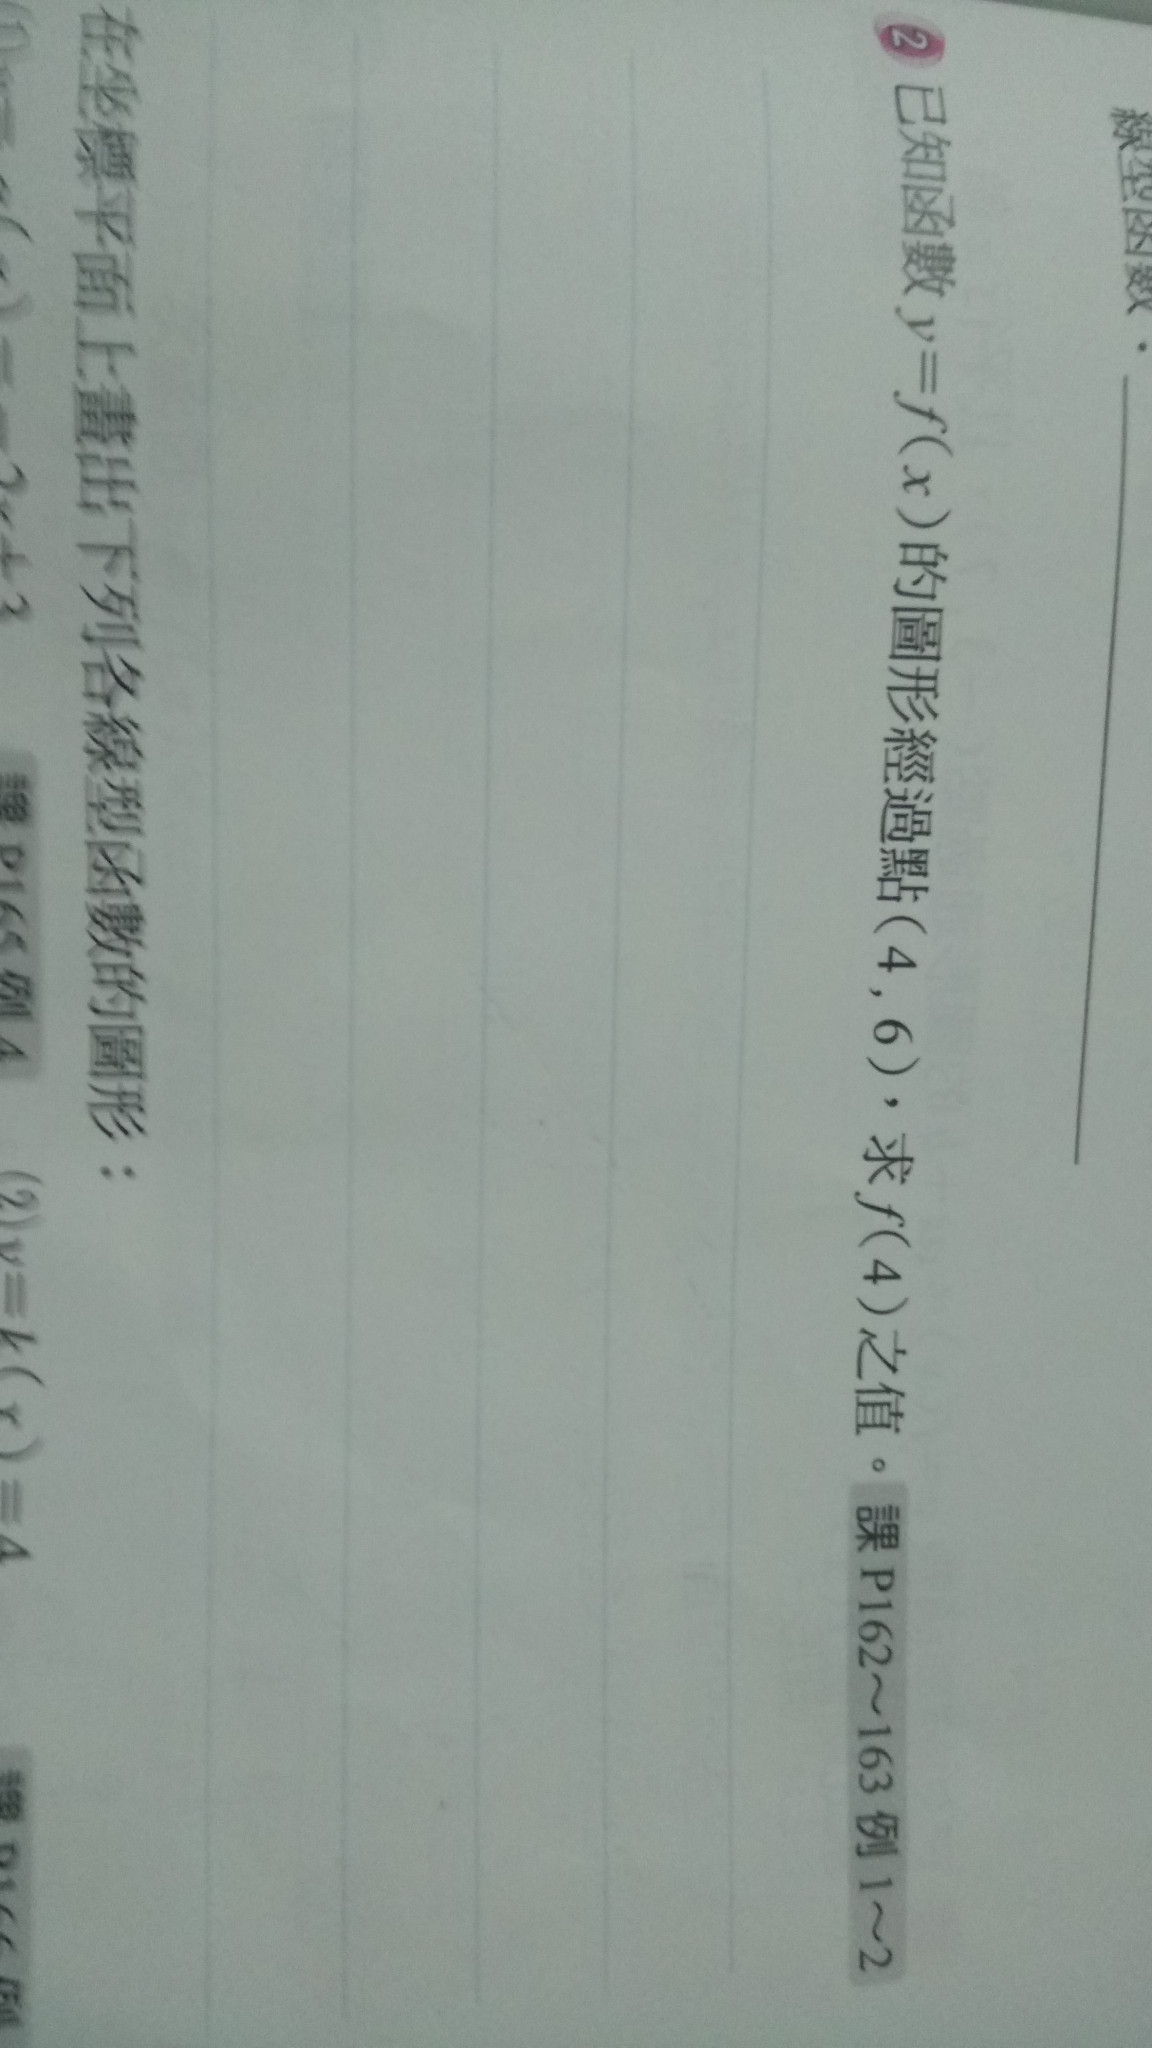 線型函數：
2 已知函數 y=f(x)的圖形經過點(4,6)，求 f(4)之值。 課 P162～163 例 1～2
在坐標平面上畫出下列各線型函數的圖形：
(1)y=g(x)=-2x+3 課 P165 例 4 (2)y=h(x)=4 課 P166 例